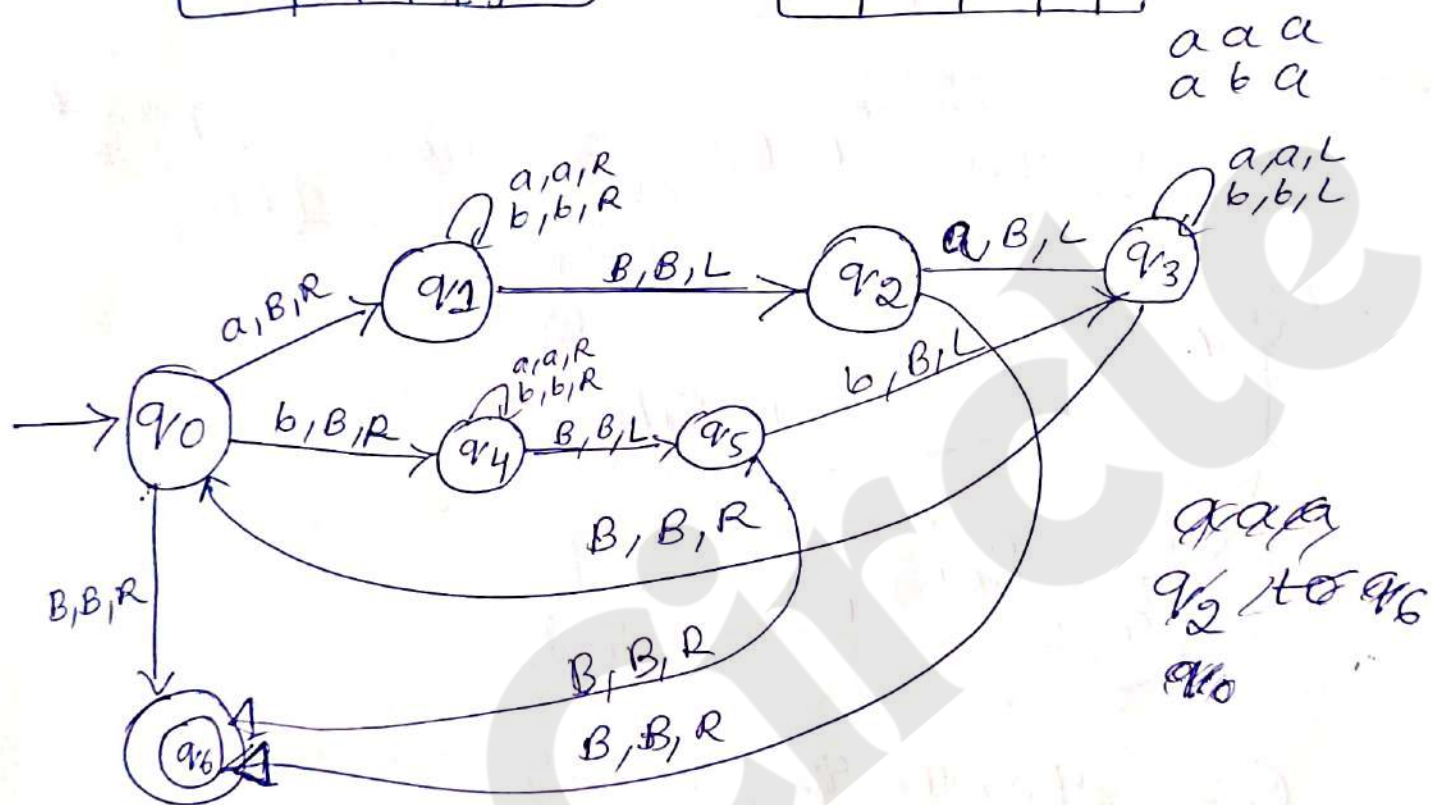 a a a
a b a
a,a,R
b,b,R
a,a,L
b,b,L
a,B,R
q1
B,B,L
q2
a,B,L
q3
a,a,R
b,b,R
q0
b,B,R
q4
B,B,L
q5
b,B,L
B,B,R
B,B,R
B,B,R
B,B,R
q6
q2 to q6
q0
Circle